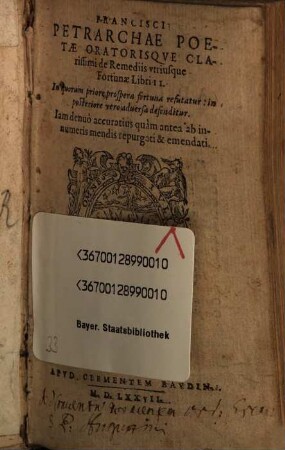 FRANCISCI
PETRARCHAE POE-
TÆ ORATORISQVE CLA-
rissimi de Remediis vtriusque
Fortunæ Libri II.
In quorum priore, prospera fortuna refutatur: in
posteriore vero aduersa defenditur.
Iam denuò accuratius quàm antea ab in-
numeris mendis repurgati & emendati.
R
<36700128990010
<36700128990010
Bayer. Staatsbibliothek
APVD CLEMENTEM BAVDIN.
M. D. LXXVII.